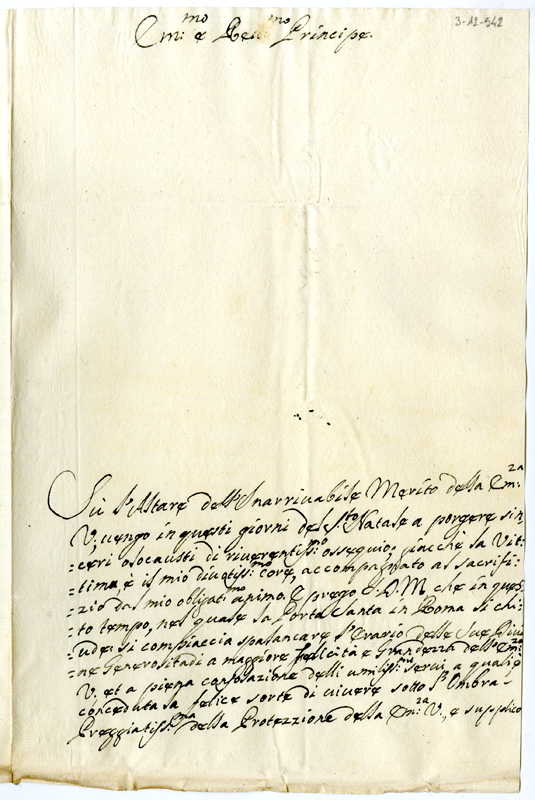 3-12-542
Em:mo e Reu:mo Principe.
Sù l'Altare dell'Inarriuabile Merito della Em:za
V, uengo in questi giorni del S.to Natale a porgere sin,
:ceri olocausti di riuerentiss:mo ossequio, giache la Vit:
:tima è il mio diuotiss:mo core, accompagnato al sacrifi:
:zio dal mio obligat:mo animo. E prego S. D. M che in ques
:to tempo, nel quale la Porta Santa in Roma si chi:
:ude, si compiaccia spalancare l'Erario delle Sue Diui
:ne Generosità di a maggiore felicità e Grandezza dell'Em:za
V. et a piena consolazione delli umiliss:mi serui, a quali è
conceduta la felice sorte di uiuere sotto l'Ombra
Preggiatiss:ma della Protezzione della Em:za V., e supplico